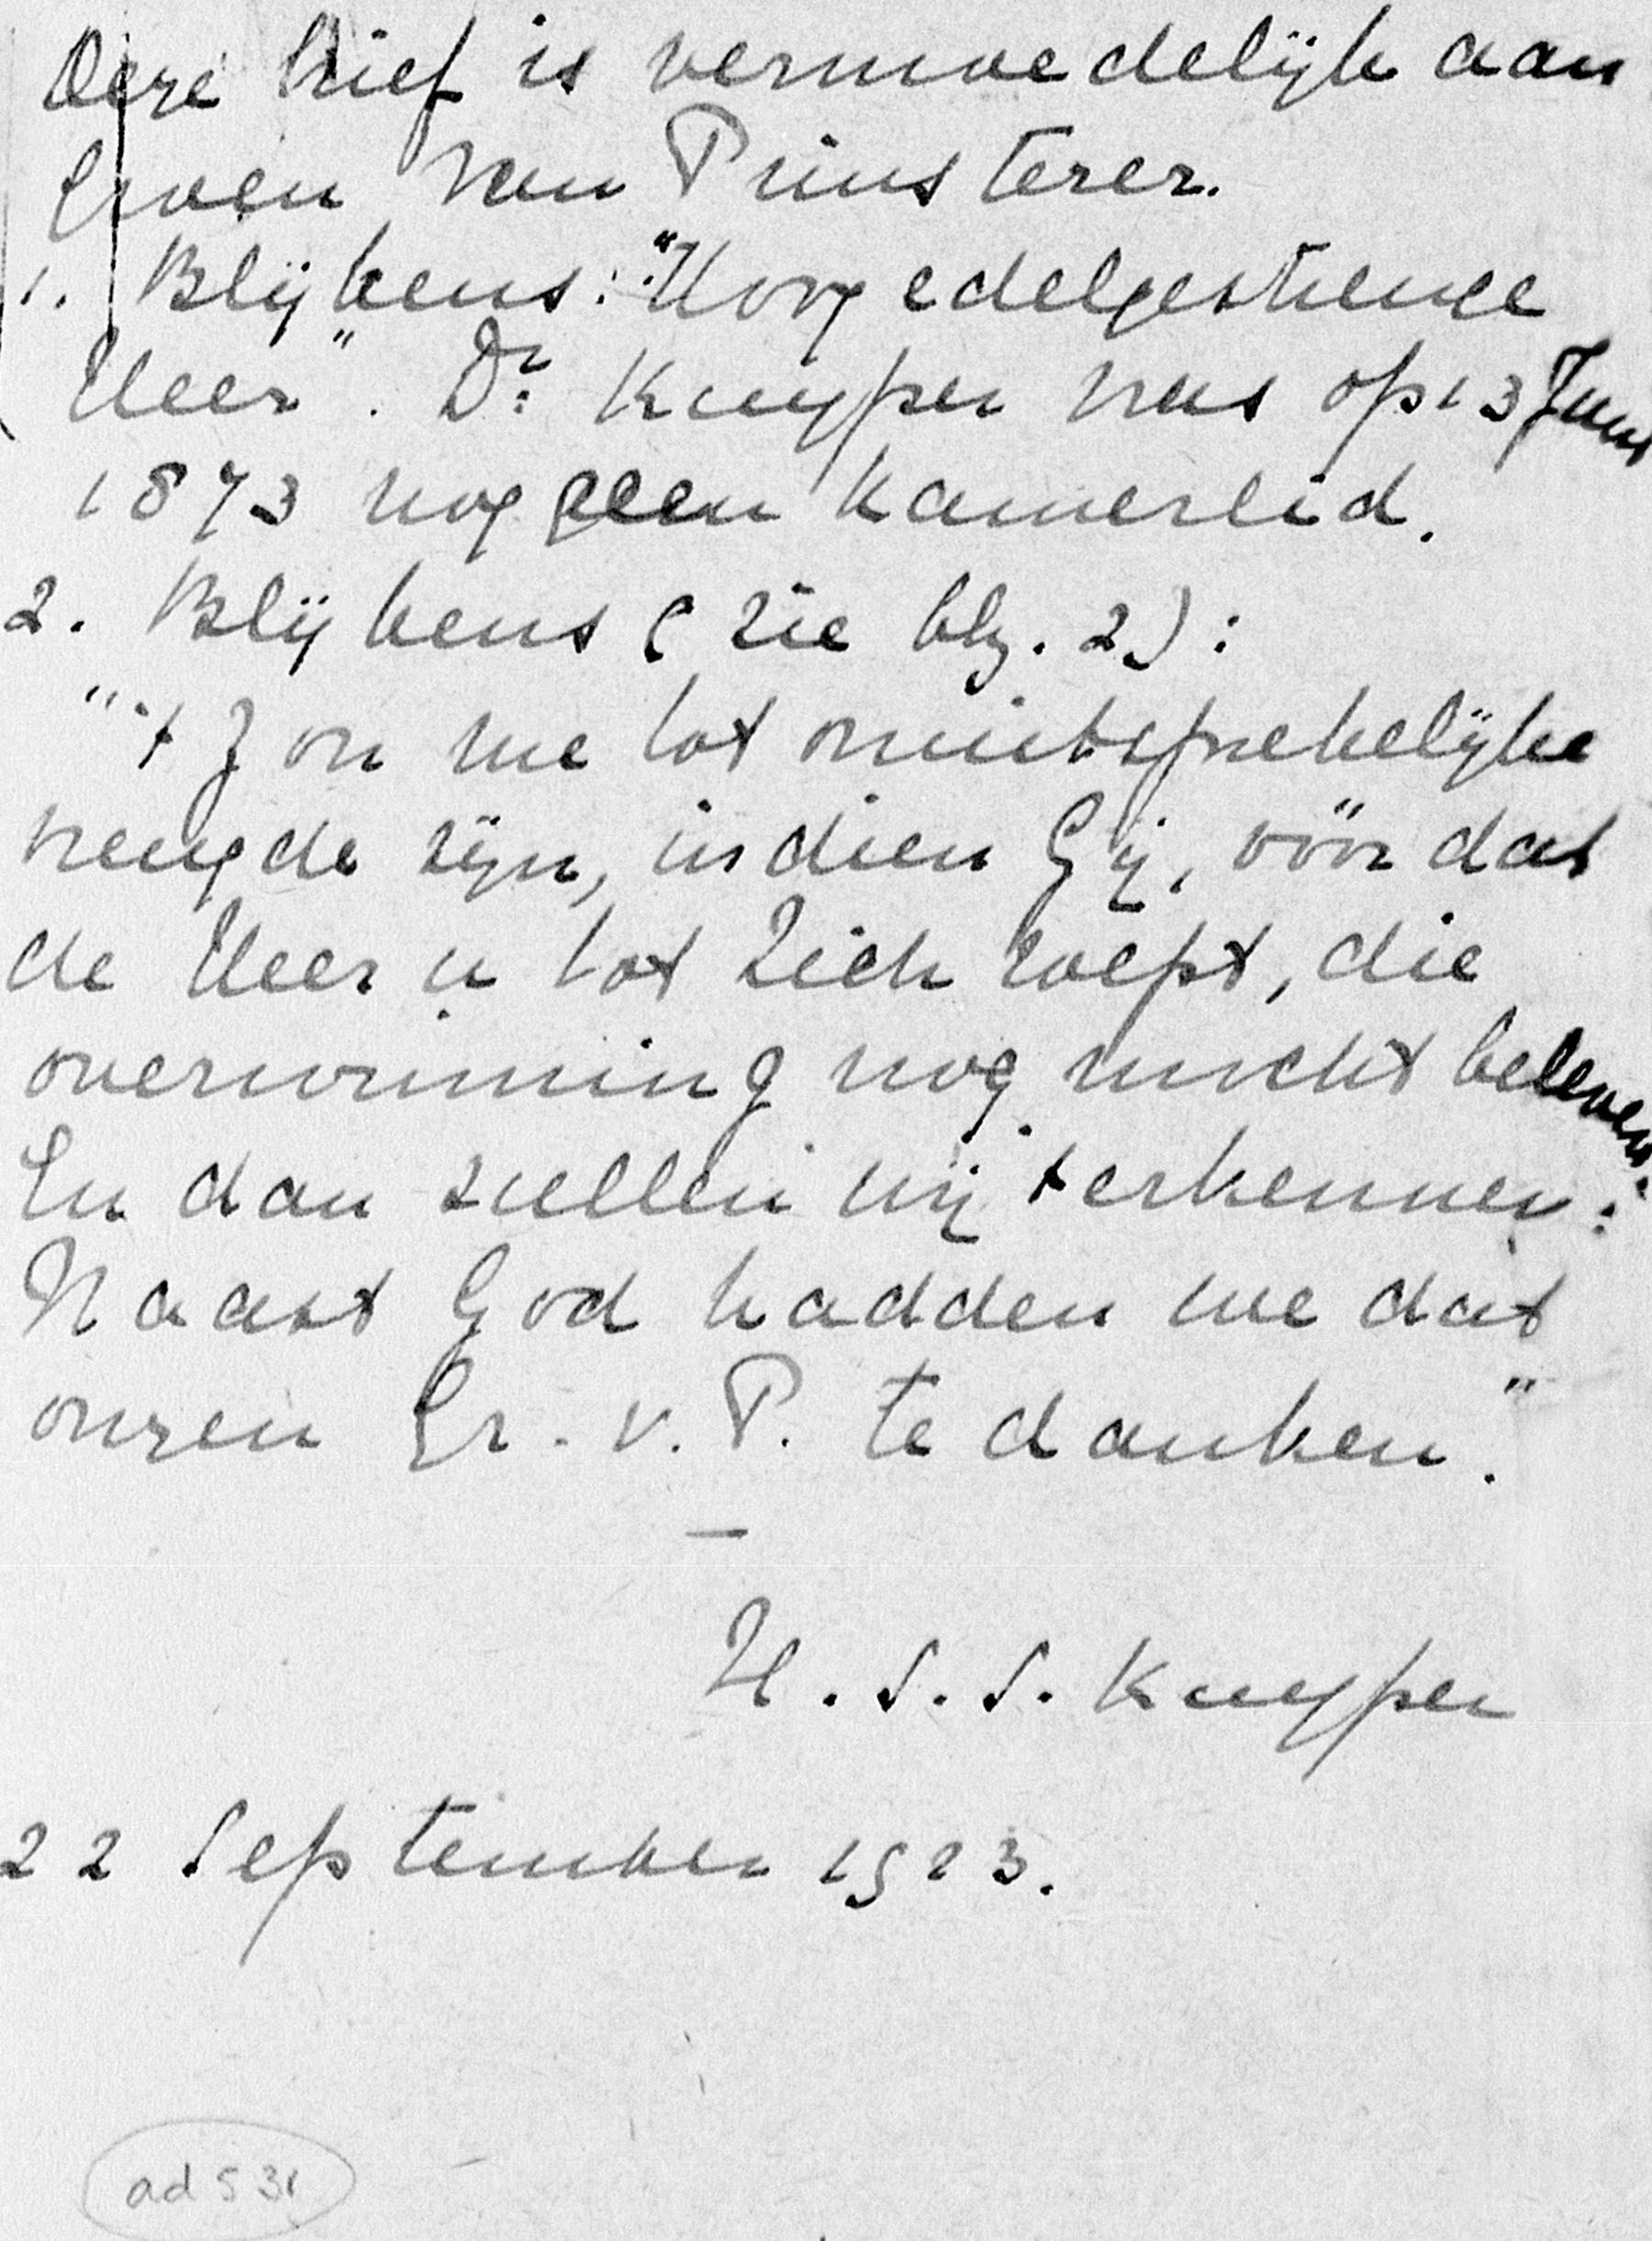 Deze brief is vermoedelijk aan
Groen van Prinsterer.
1. Blijkens: "Hoogedelgestrenge
Heer". Dr. Kuyper was op 13 Juni
1873 nog geen Kamerlid.
2. Blijkens (zie blz. 2):
"'t Zou me tot onuitsprekelijke
vreugde zijn, indien Gij, vóór dat
de Heer u tot Zich roept, die
overwinning nog mocht beleven.
En dan zullen wij 't erkennen:
Naast God hadden we dat
onzen Gr. v. P. te danken."
—
H. S. S. Kuyper
22 September 1923.
ad 531